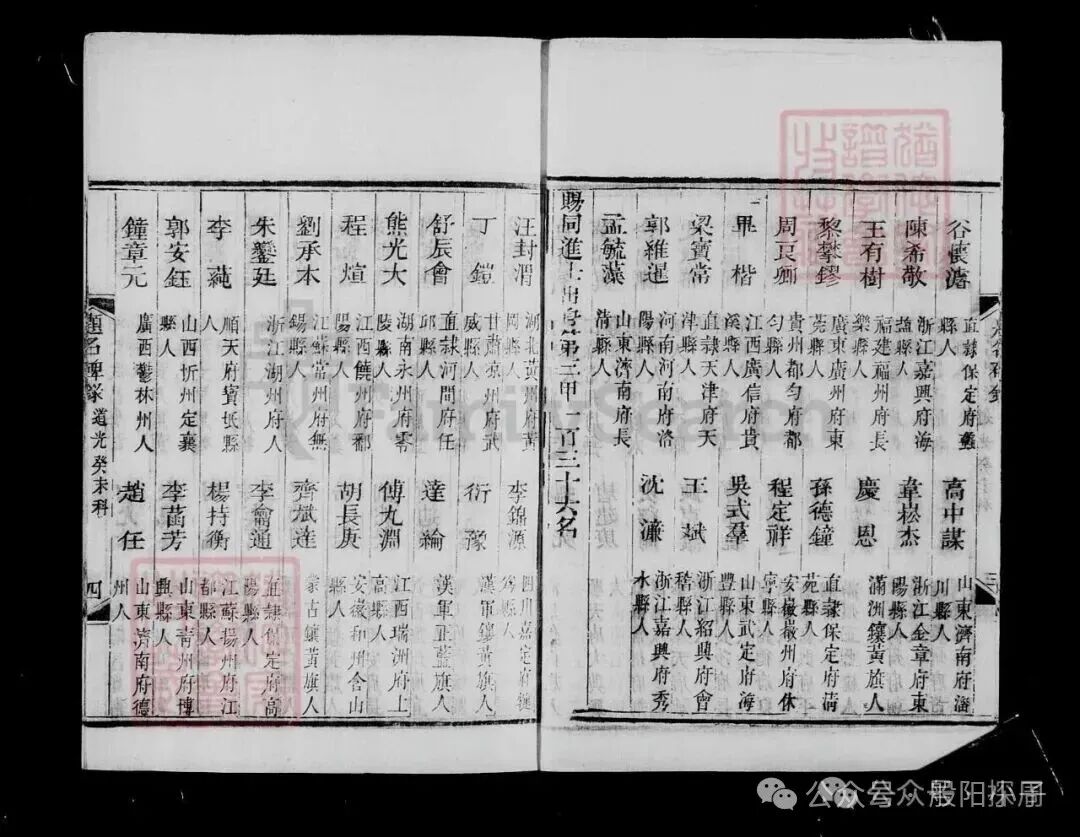 谷懷
直隸保定府蠡
縣人
高中謀
山東濟南府淄
川縣人
陳希敬
浙江嘉興府海
鹽縣人
韋崧杰
浙江金華府東
陽縣人
王有樹
福建福州府長
樂縣人
慶恩
滿洲鑲黃旗人
黎攀鏐
廣東廣州府東
莞縣人
孫德鐘
直隸保定府清
周良卿
貴州都勻府都
勻縣人
程定祥
安徽徽州府休
寧縣人
畢楷
江西廣信府貴
溪縣人
吳式羣
山東武定府海
豐縣人
梁寶常
直隸天津府天
津縣人
王斌
浙江紹興府會
稽縣人
郭維暹
河南河南府洛
陽縣人
沈濂
浙江嘉興府秀
水縣人
孟毓藻
山東濟南府長
清縣人
賜同進士出身第三甲一百三十六名
汪封渭
湖北黃州府黃
岡縣人
李錦源
四川嘉定府犍
為縣人
丁鎧
甘肅凉州府武
威縣人
衍豫
漢軍鑲黃旗人
舒辰會
直隸河間府任
邱縣人
達綸
漢軍正藍旗人
熊光大
湖南永州府零
陵縣人
傅九淵
江西瑞洲府上
高縣人
程煊
江西饒州府鄱
陽縣人
胡長庚
安徽和州含山
縣人
劉承本
江蘇常州府無
錫縣人
齊斌達
蒙古鑲黃旗人
朱鑾廷
浙江湖州府人
李儒通
直隸保定府高
陽縣人
李蒓
順天府寶坻縣
人
楊持衡
江蘇揚州府江
都縣人
郭安鈺
山西忻州定襄
縣人
李菡芳
山東青州府博
興縣人
鐘章元
廣西鬱林州人
趙任
山東濟南府德
州人
題名碑錄
道光癸未科
四
FamilySearch
公众号·般阳探寻